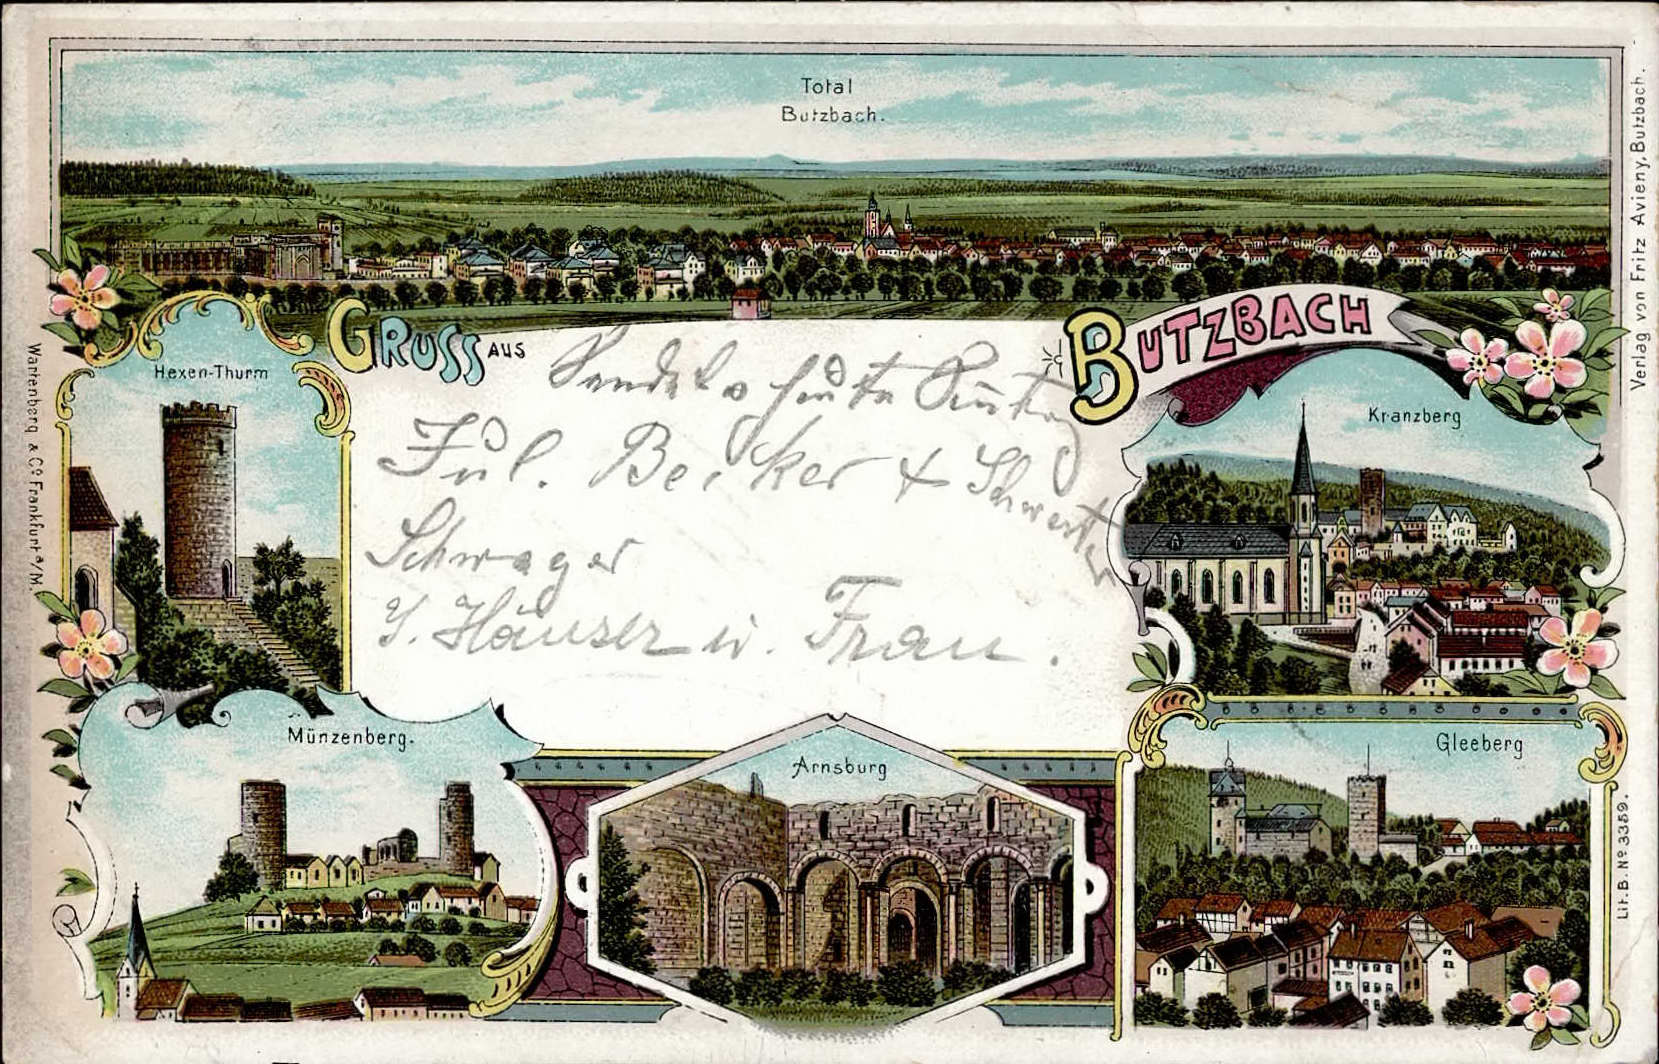 Total
Butzbach.
GRUSS AUS
BUTZBACH
Hexen-Thurm
Kranzberg
Jul. Becker & Schwester
Schwager
Häuser u. Frau.
Münzenberg.
Arnsburg
Gleeberg
Wartenberg & Co. Frankfurt a/M.
Verlag von Fritz Avieny, Butzbach.
Lit. B. No 3359.